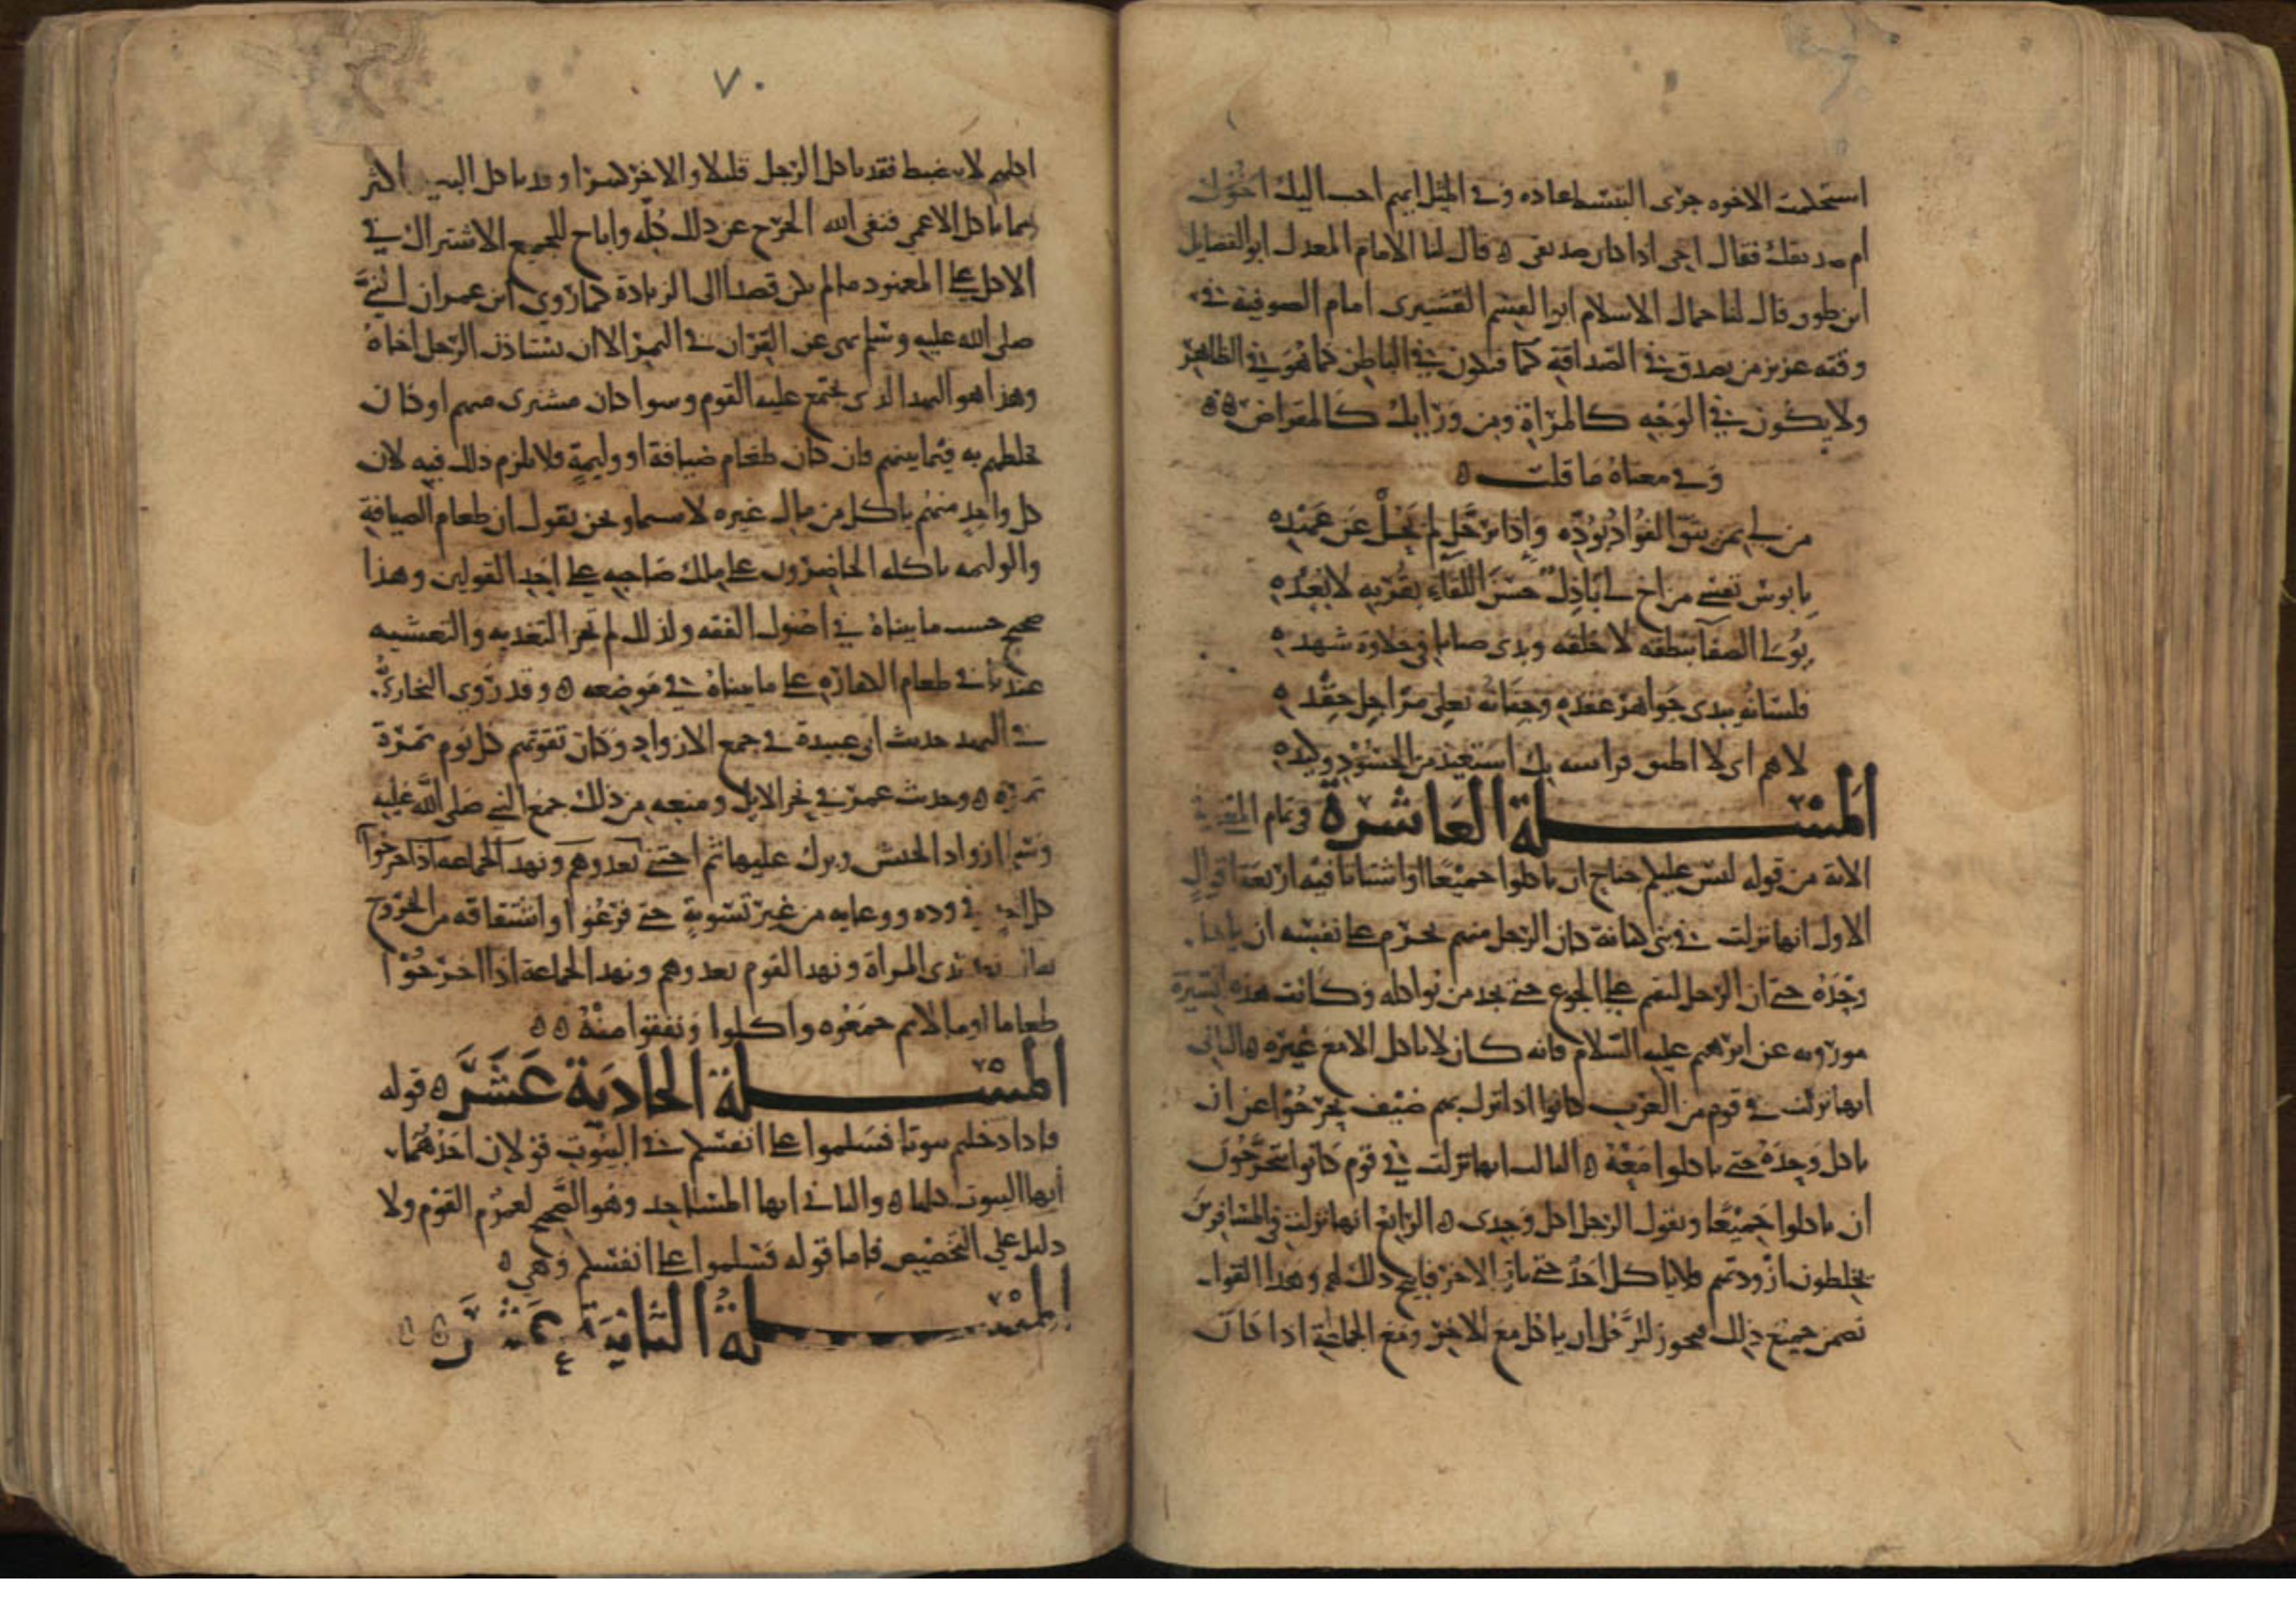 استحكمت الاخوه جرى التبسط عاده وفي المثل ايهم احب اليك اخوك
ام صديقك فقال اخي اذا كان صديقي ه قال لنا الامام المعدل ابو الفضايل
ابن طوق قال لنا جمال الاسلام ابو القسم القشيرى امام الصوفية في
وقته عزيز من يصدق في الصداقة فيكون في الباطن كما هو في الظاهر
ولا يكون في الوجه كالمرآة ومن ورايك كالمقراض ه ه
وفي معناه ما قلت ه
من لي بمن يثق الفؤاد بوده واذا ترحل لم يحل عن عهده
يا بوس نفسي من اخ لي باذل حسن اللقاء بقربه لا بعده
يولى الصفا بنطقه لا خلقه ويدى صابا في حلاوة شهده
فلسانه يبدى جواهر عقده وجنانه تغلى مراجل حقده
لاهم اني لا اطيق فراسه بك استعيذ من الحسود وكيده
المسئلة العاشرة في تمام
الاية من قوله ليس عليكم جناح ان تاكلوا جميعا او اشتاتا فيه اربعة اقوال
الاول انها نزلت في بني كنانة كان الرجل منهم يحرم على نفسه ان ياكل
وحده حتى ان الرجل ليقيم على الجوع حتى يجد من يواكله وكانت هذه السيرة
موروثه عن ابرهيم عليه السلام فانه كان لا ياكل الا مع غيره ه الثاني
انها نزلت في قوم من العرب كانوا اذا نزل بهم ضيف تحرجوا عن ان
ياكل وحده حتى ياكلوا معه ه الثالث انها نزلت في قوم كانوا يتحرجون
ان ياكلوا جميعا ويقول الرجل اكل وحدى ه الرابع انها نزلت في المسافرين
يخلطون ازودتهم فلا ياكل احد حتى ياتي الاخر فابيح ذلك لهم وهذا القول
تضمن جميع ذلك فيجوز للرجل ان ياكل مع الاخر ومع الجماعة اذا كان
٧٠
اكلهم لا ينضبط فقد ياكل الرجل قليلا والاخر كثيرا وقد ياكل البصير اكثر
مما ياكل الاعمى فنفى الله الحرج عن ذلك كله واباح للجميع الاشتراك في
الاكل على المعهود ما لم يكن قصدا الى الزيادة كما روى ابن عمر ان النبي
صلى الله عليه وسلم نهى عن القران في التمر الا ان يستاذن الرجل اخاه
وهذا هو النهد الذى يجتمع عليه القوم وسوا كان مشترى منهم او كان
بخلطهم به فيما بينهم فان كان طعام ضيافة او وليمة فلا يلزم ذلك فيه لان
كل واحد منهم ياكل من مال غيره لا سيما ونحن نقول ان طعام الضيافة
والوليمه ياكله الحاضرون على ملك صاحبه على احد القولين وهذا
صحيح حسب ما بيناه في اصول الفقه ولذلك لم تجز التغديه والتعشيه
عندنا في طعام الكفاره على ما بيناه في موضعه ه وقد روى البخارى
في النهد حديث ابي عبيدة في جمع الازواد وكان يقوتهم كل يوم تمرة
تمرة ه وحديث عمر في نحر الابل ومنعه من ذلك جمع النبي صلى الله عليه
وسلم ازواد الجيش وبرك عليها ثم احتثى
في وده ووعايه من غير تسوية حتى فرغوا واشتقاقه من الخروج
ثدى المراة ونهد القوم لعدوهم ونهد الجماعة اذا اخرجوا
طعاما او مالا ثم جمعوه واكلوا ونفقوا منه ه ه
المسئلة الحادية عشر ه قوله
فاذا دخلتم بيوتا فسلموا على انفسكم في البيوت قولان احدهما
انها البيوت كلها ه والثاني انها المساجد وهو الصحيح لعموم القوم ولا
دليل على التخصيص فاما قوله فسلموا على انفسكم وهي ه
المسئلة الثانية عشر ه ه